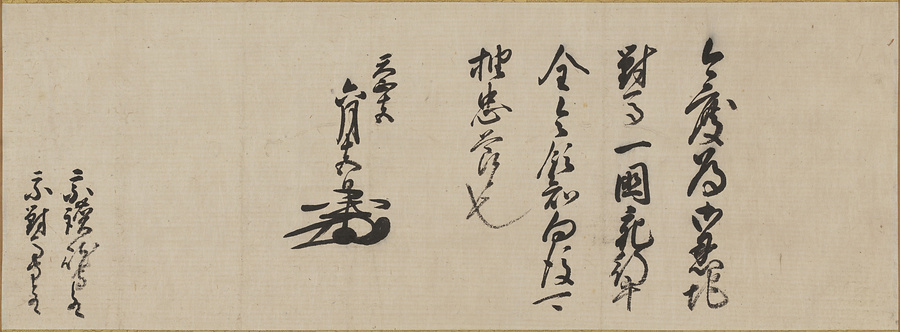 今度為御恩地
對馬一國充行畢
全令領知向後可
抽忠節也
天正十五
六月十五日
宗讃岐守とのへ
宗對馬守とのへ